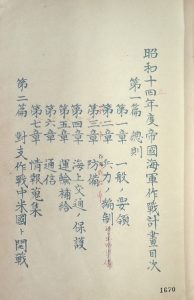 昭和十四年度帝國海軍作戰計畫目次
第一篇 總則
第一章 一般ノ要領
第二章 兵力ノ編制
第三章 防備
第四章 海上交通ノ保護
第五章 運輸補給
第六章 通信
第七章 情報蒐集
第二篇 對支作戰中米國ト開戰
1670